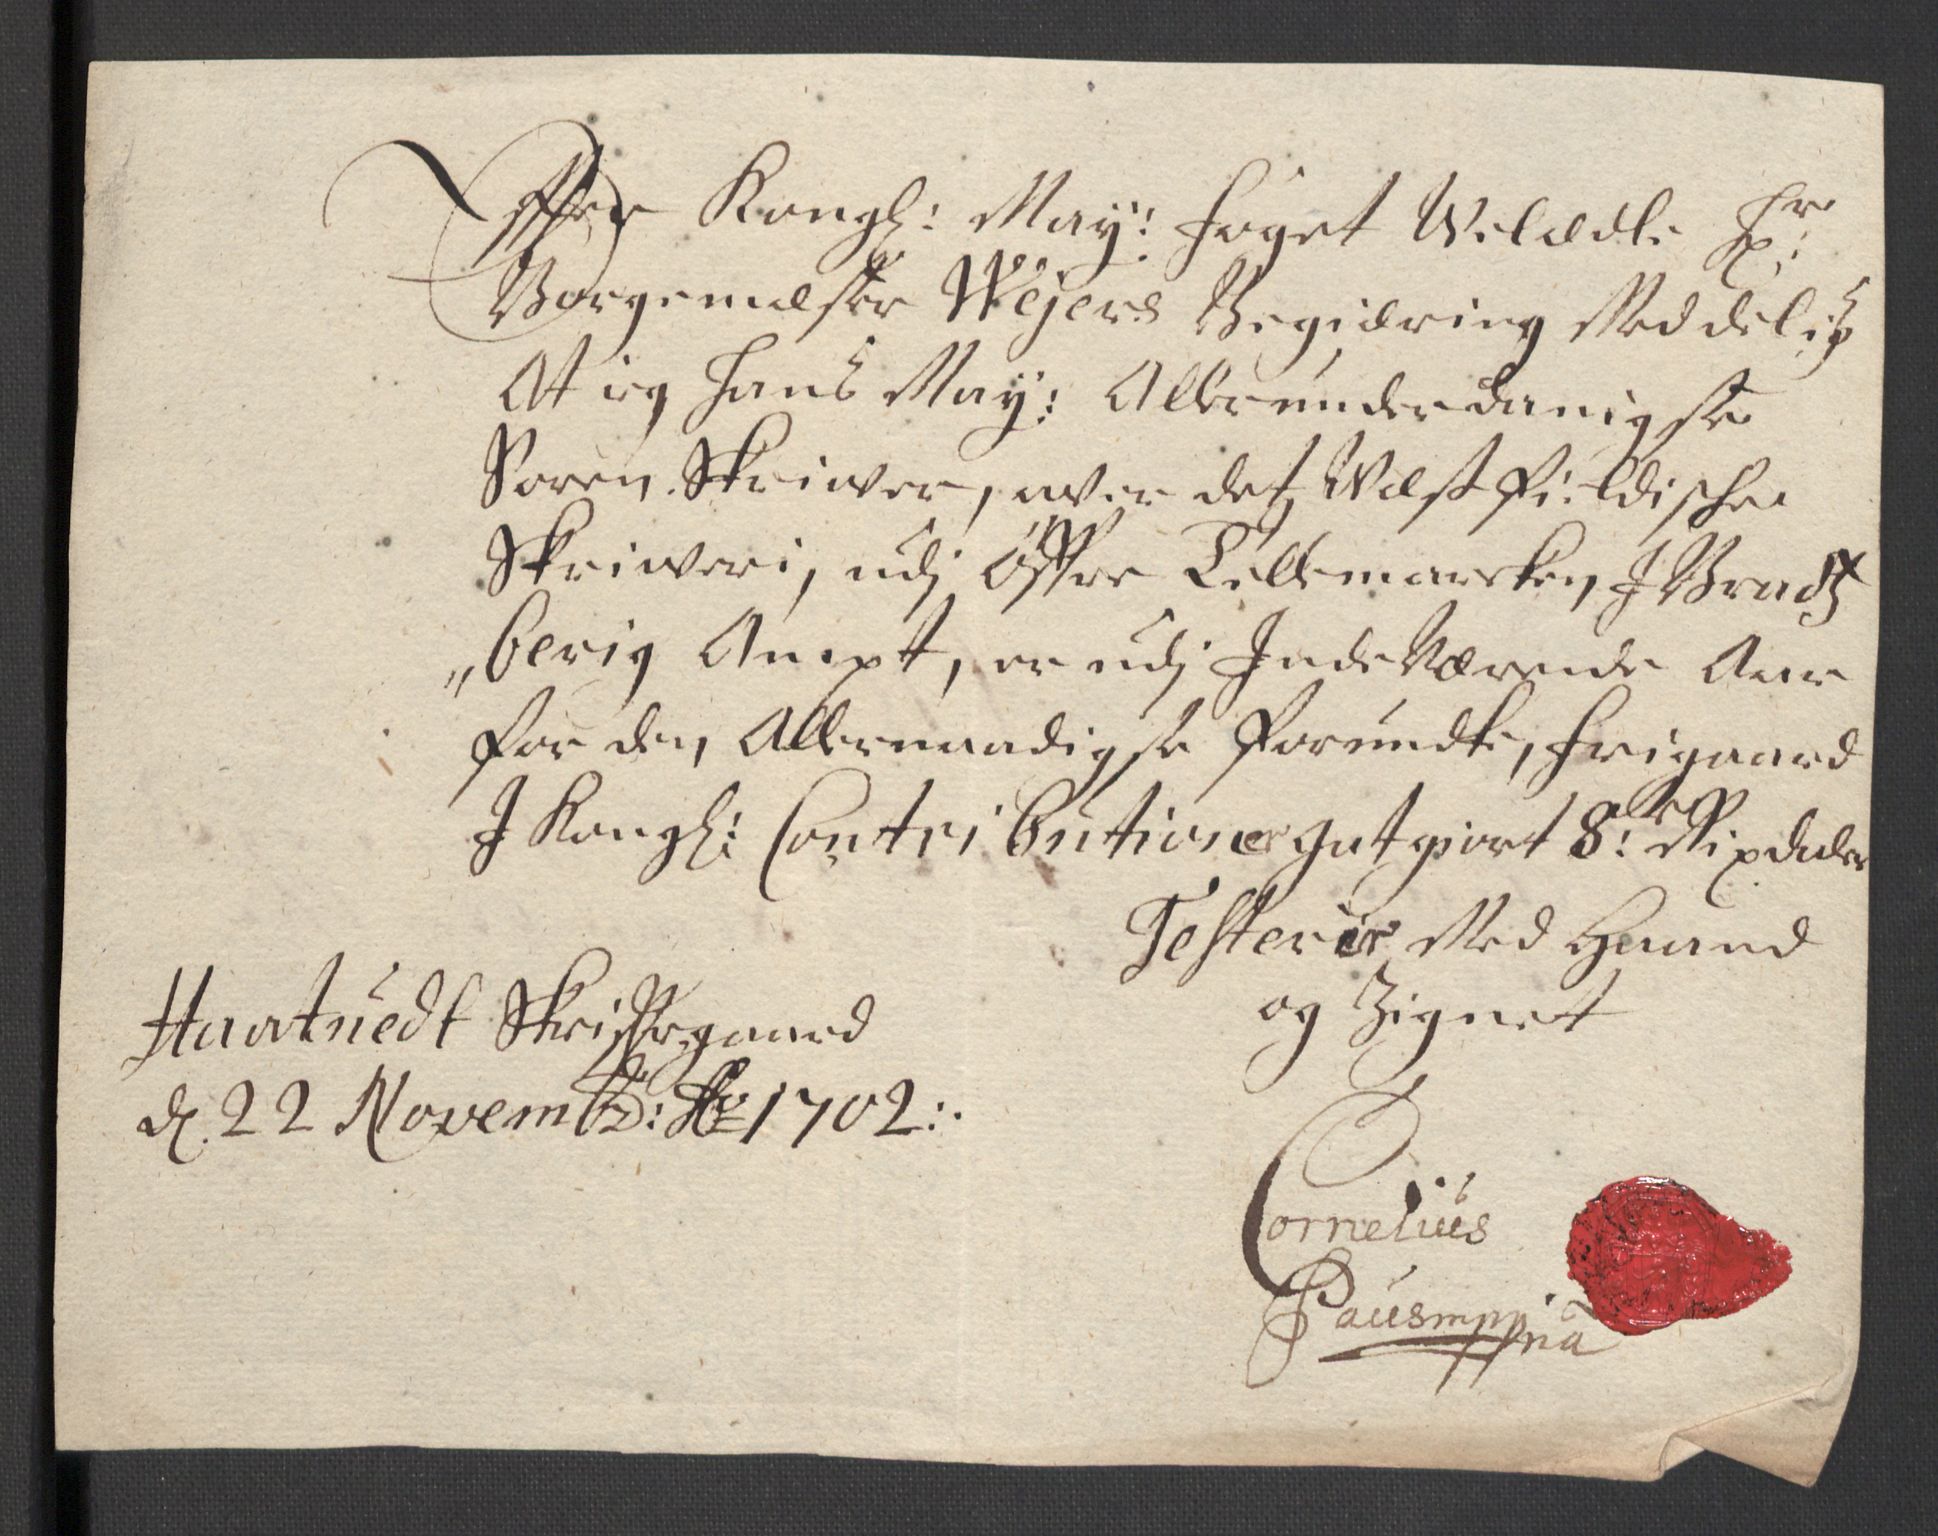 Effter Kongl: May: foget Velædle Hr:
Borgemæster Wejers Begiæring Meddelis
At ieg hans May: Allerunderdanigste
Soren Skriwer, ower det Wæstfieldische
Skriweri, udj Öffre Tellemarcken J Brads
„berig Ampt, er udj Jndeværende Aar
for den Allernaadigste forundte, frigaard
J Kongl: Contributioner gutgiort 8: Rixdaler
Testerer Med Haand
og Zignet
Haatuedt Skriffergaard
d. 22 Novemb: Ao 1702:.
Cornelius
Paus mppria